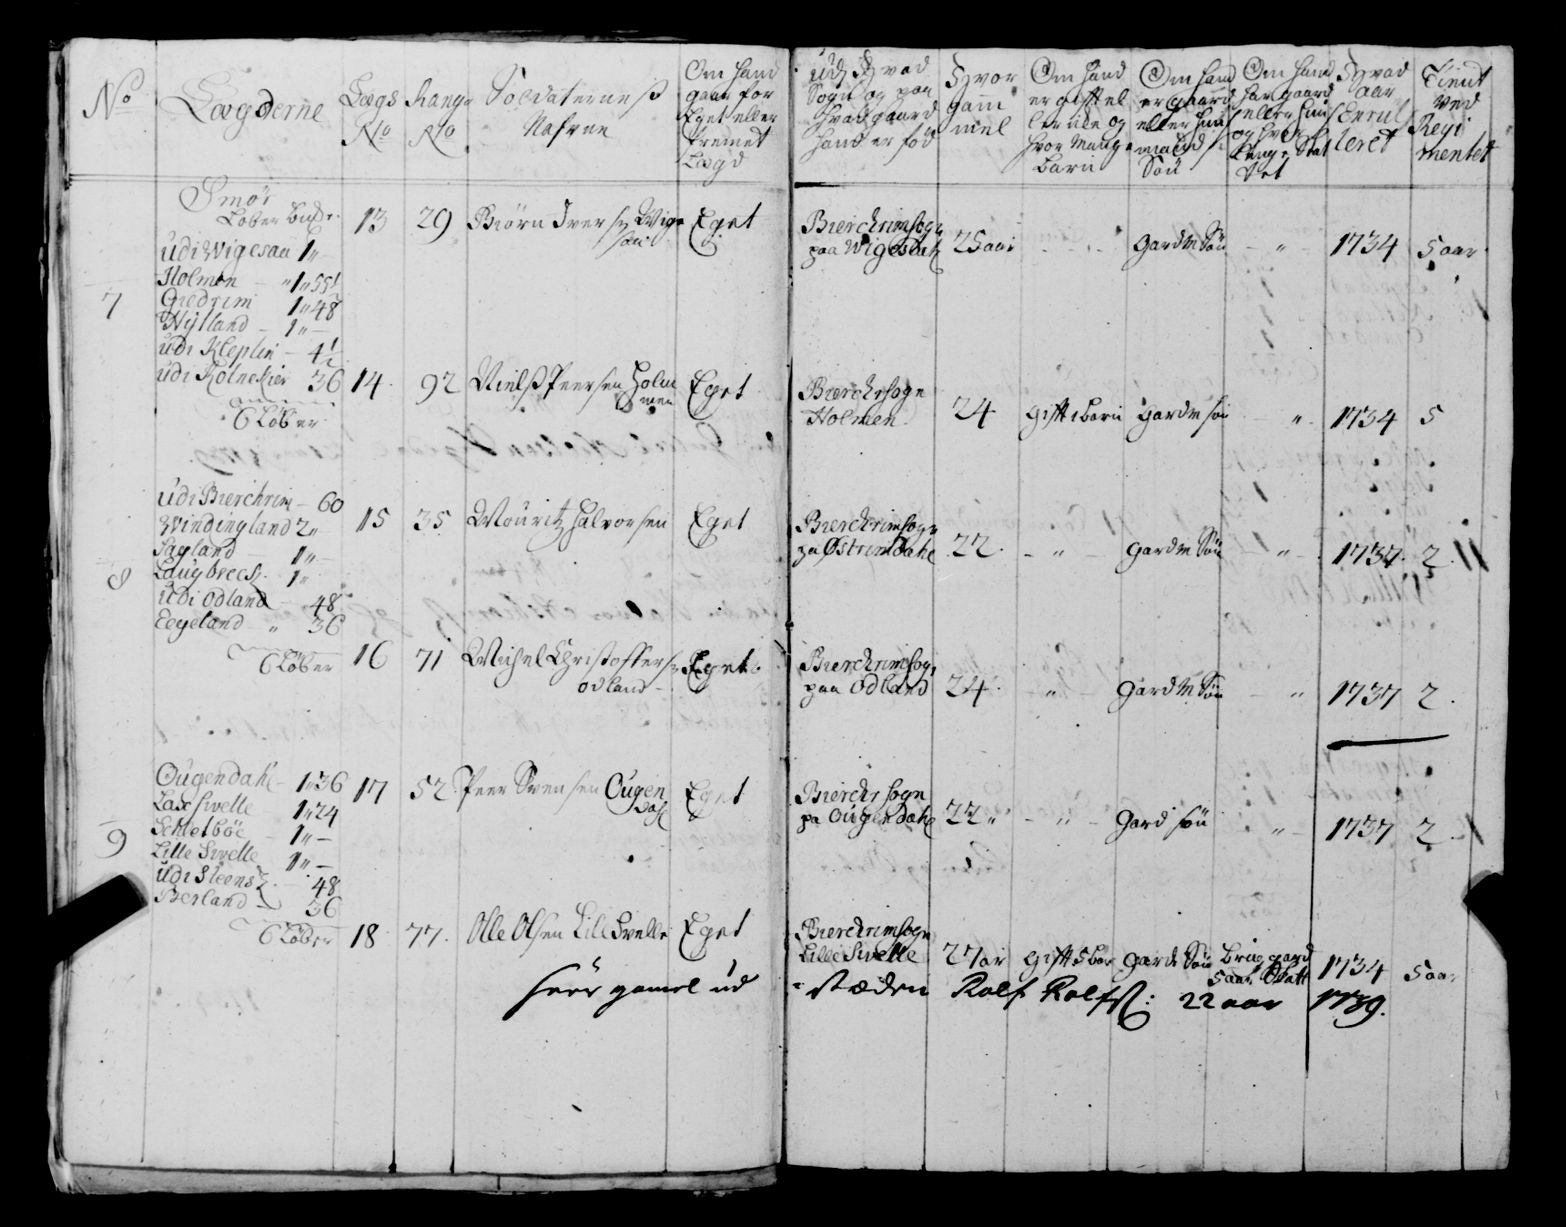 No
Lægderne
Lægs No
Rang No
Soldaterneß Nafne
Om hand gaar for Eget eller fremet Lægd
udj Hvad Sogn og paa hvad gaard hand er fød
Hvor gamel
Om hand er gift eller ile og hvor Mange Barn
Om hand er gaard eller huus mands Søn
Om hand har gaard eller huus og hvor Lenge
Hvad aar Enrulleret
Tient ved Regimentet
Smør
Løber Bndr
7
udi Wigesaa 1 "
Holmen - " 1 " 55½
Giedrim 1 " 48
Nÿland - 1 " -
udi Kleplin - 4½
udi 36
6 Løber
13 29 Biørn Iversen Wigesaa Eget
Bierckrimsogn
paa Wigesaae 25 aar - " - gardm Søn - " - 1734 5 aar
14 92 Nielß Peersen Holmmen Eget
Bierckrsogn
Holmen 24 gift 1 barn gardm søn " 1734 5
8
udi Bierchrim - 60
Windingland 2 "
Sagland 1 " -
Laugbrecs 1 "
udi Odland 48
Eegeland - " 36
6 Løber
15 35 Mouritz Halvorsen Eget
Bierckrimsogn
pa Østremdahl 22 - " - gardm Søn - " - 1737 2
16 71 Michel Christoffersn Eget
Odland -
Bierckrimsogn
paa Odland 24 - " - gardm Søn - " 1737 2
9
Ougendahl - 1 " 36
Lax Svelle 1 " 24
Schietbøe - 1 " -
Lille Svelle 1 " -
udi Steens 48
Berland - 36
6 Løber
17 52 Peer Svensen Ougendahl Eget
Bierckr sogn
pa Ougendahl 22 " - " - Gard søn " - 1737 2
18 77 Olle Olsen Lille Svelle Eget
Bierckrimsogn
Lille Svelle 27 ar gift 5 bar gards Søn Brug gaard 5 aar 1734 5 aar
for gamel ud - stæden Rolf Rolfs: 22 aar 1739.